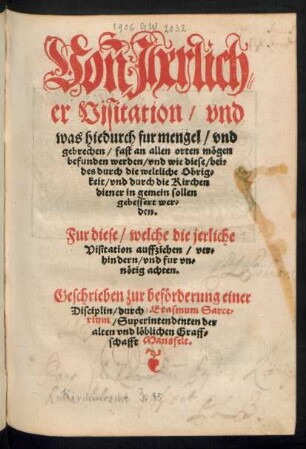 1906 GW 2032
Von Jerlich/
er Visitation / vnd
was hiedurch fur mengel / vnd
gebrechen / fast an allen orten mögen
befunden werden / vnd wie diese / bei⸗
des durch die weltliche Obrig⸗
keit / vnd durch die Kirchen
diener in gemein sollen
gebessert wer⸗
den.
Fur diese / welche die jerliche
Visitation auffziehen / ver⸗
hindern / vnd fur vn⸗
nötig achten.
Geschrieben zur beförderung einer
Disciplin / durch Erasmum Sarce⸗
rium / Superintendenten der
alten vnd löblichen Graff⸗
schafft Mansfelt.